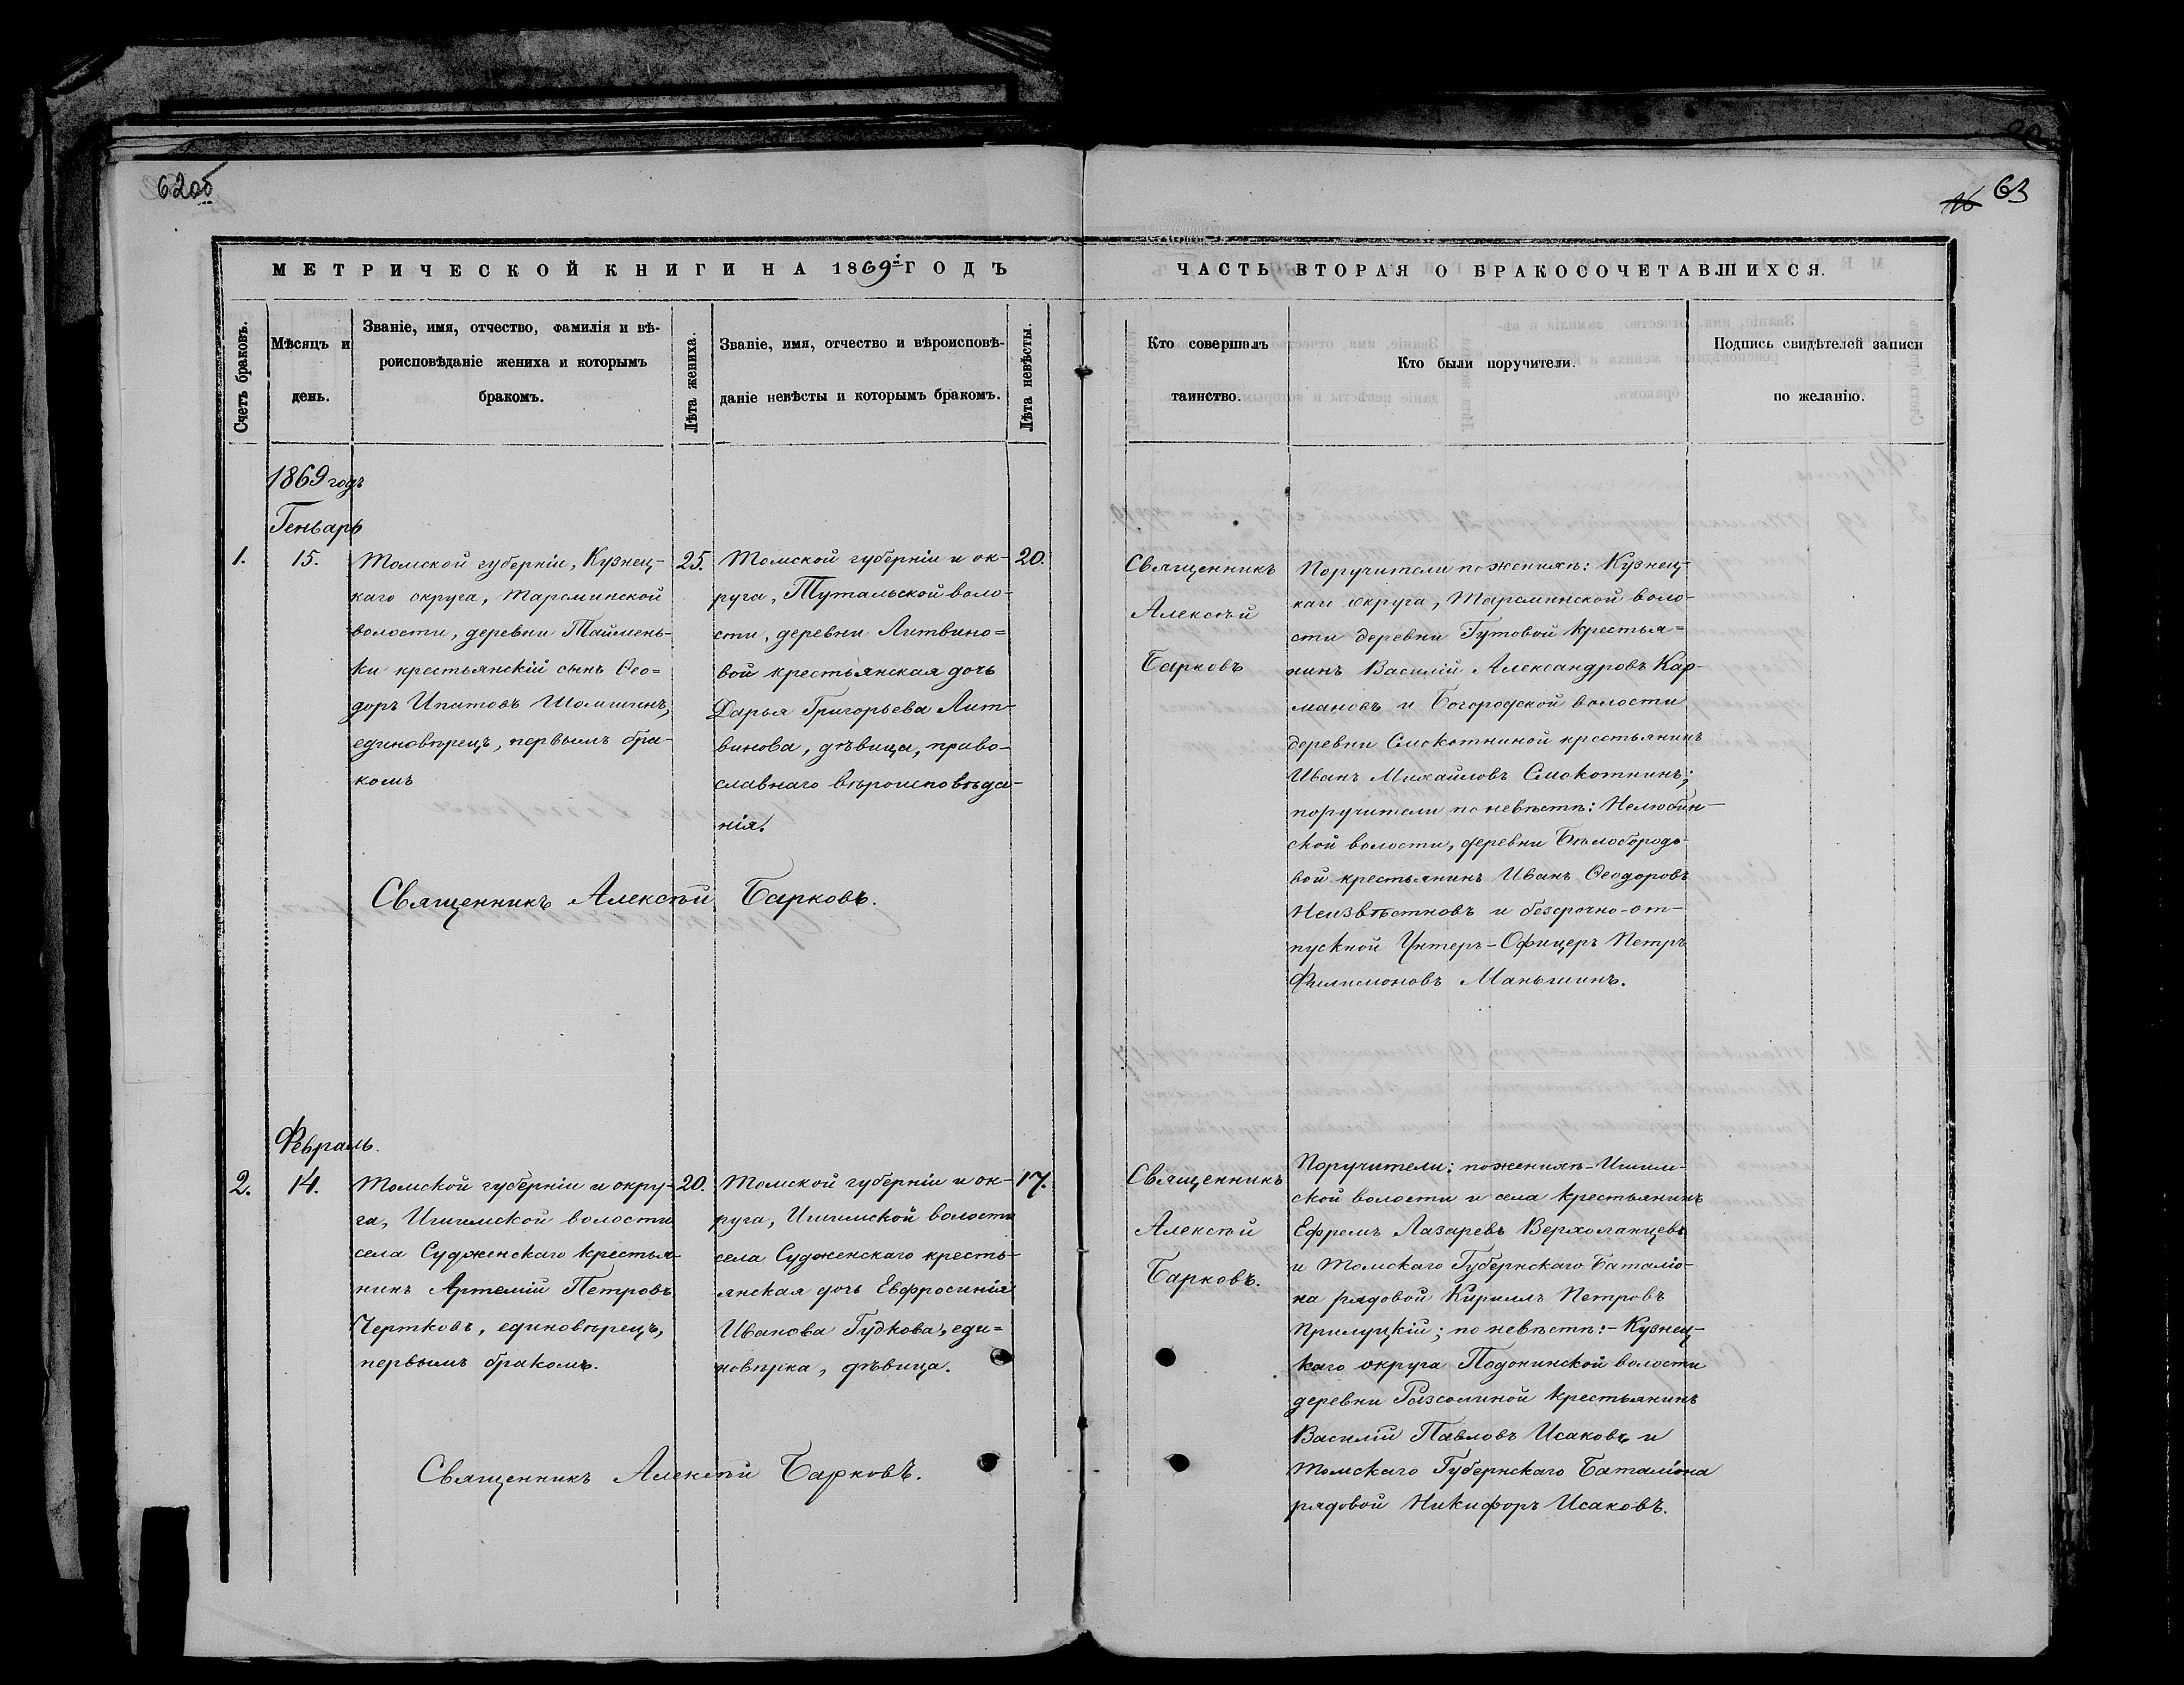 62об
16 63
МЕТРИЧЕСКОЙ КНИГИ НА 1869й ГОДЪ
ЧАСТЬ ВТОРАЯ О БРАКОСОЧЕТАВШИХСЯ.
Счетъ браковъ.
Мѣсяцъ и
день.
Званіе, имя, отчество, фамилія и вѣ-
роисповѣданіе жениха и которымъ
бракомъ.
Лѣта жениха.
Званіе, имя, отчество и вѣроисповѣ-
даніе невѣсты и которымъ бракомъ.
Лѣта невѣсты.
Кто совершалъ
таинство.
Кто были поручители.
Подпись свидѣтелей записи
по желанію.
1869 годъ
Генварь
1.
15.
Томской губерніи, Кузнец-
каго округа, Тарсминской
волости, деревни Таймень-
ки крестьянскій сынъ Ѳео=
доръ Ипатовъ Шомшинъ,
единовѣрецъ, первымъ бра-
комъ
25.
Томской губерніи и ок-
руга, Тутальской воло-
сти, деревни Литвино=
вой крестьянская дочь
Дарья Григорьева Лит-
винова, дѣвица, право-
славнаго вѣроисповѣда-
нія.
20.
Священникъ Алексѣй Барковъ.
Священникъ
Алексѣй
Барковъ
Поручители по женихѣ: Кузнец-
каго округа, Тарсминской воло-
сти деревни Гутовой крестья=
нинъ Василій Александровъ Кар-
мановъ и Богородской волости
деревни Смокотниной крестьянинъ
Иванъ Михайловъ Смокотнинъ;
поручители по невѣстѣ: Нелюбин-
ской волости, деревни Бѣлобородо-
вой крестьянинъ Иванъ Ѳеодоровъ
Неизвѣстновъ и безсрочно-от-
пускной Унтеръ-Офицеръ Петръ
Филимоновъ Маньшинъ.
Февраль.
2.
14.
Томской губерніи и окру-
га, Ишимской волости
села Судженскаго крестья-
нинъ Артемій Петровъ
Чертковъ, единовѣрецъ,
первымъ бракомъ.
20.
Томской губерніи и ок-
руга, Ишимской волости
села Судженскаго кресть-
янская дочь Евфросинія
Иванова Гудкова, еди=
новѣрка, дѣвица.
17.
Священникъ Алексѣй Барковъ.
Священникъ
Алексѣй
Барковъ.
Поручители: по женихѣ - Ишим-
ской волости и села крестьянинъ
Ефремъ Лазаревъ Верхоланцевъ
и Томскаго Губернскаго Баталіо-
на рядовой Кириллъ Петровъ
Прилуцкій; по невѣстѣ: - Кузнец-
каго округа Подонинской волости
деревни Разсолиной крестьянинъ
Василій Павловъ Исаковъ и
Томскаго Губернскаго Баталіона
рядовой Никифоръ Исаковъ.